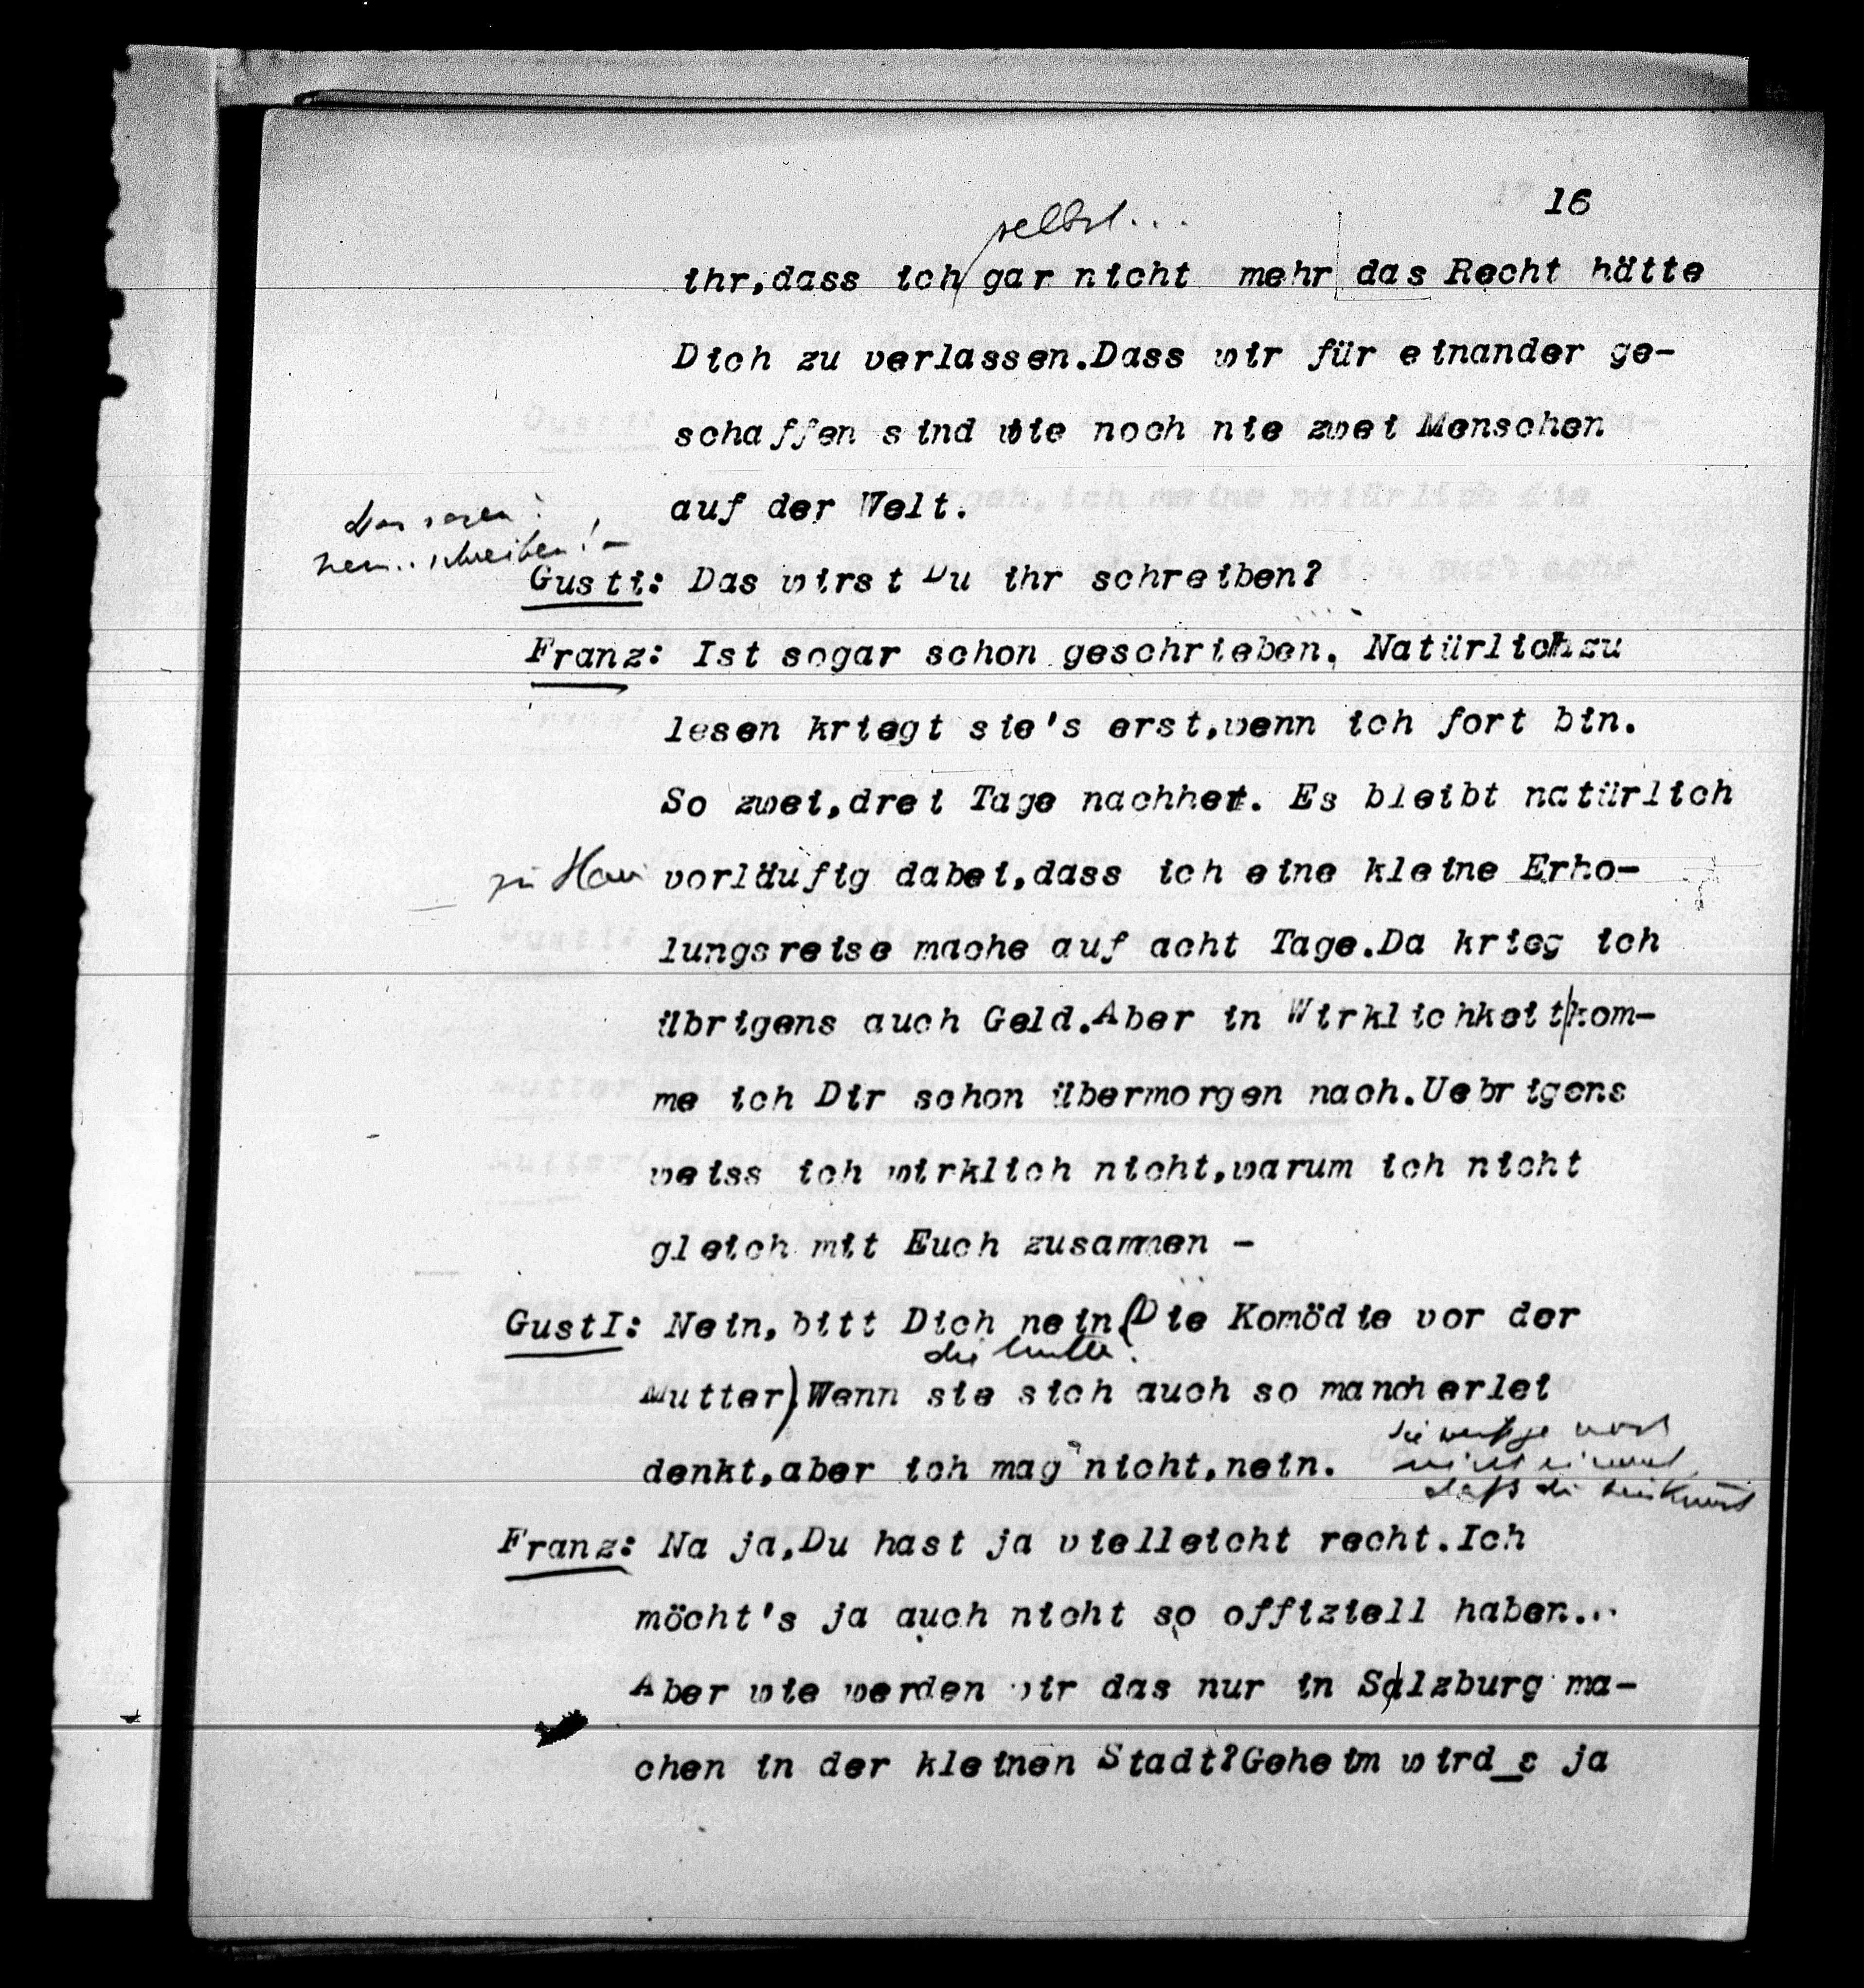 16
selbst...
ihr,dass ich gar nicht mehr das Recht hätte
Dich zu verlassen.Dass wir für einander ge-
schaffen sind wie noch nie zwei Menschen
auf der Welt.
schreiben!-
Gusti: Das wirst Du ihr schreiben?
Franz: Ist sogar schon geschrieben. Natürlich zu
lesen kriegt sie's erst,wenn ich fort bin.
So zwei,drei Tage nachher. Es bleibt natürlich
vorläufig dabei,dass ich eine kleine Erho-
lungsreise mache auf acht Tage.Da krieg ich
übrigens auch Geld.Aber in Wirklichkeit kom-
me ich Dir schon übermorgen nach.Uebrigens
weiss ich wirklich nicht,warum ich nicht
gleich mit Euch zusammen -
GustI: Nein, bitt Dich nein.(Die Komödie vor der
Mutter).Wenn sie sich auch so mancherlei
denkt,aber ich mag nicht,nein.
Franz: Na ja,Du hast ja vielleicht recht.Ich
möcht's ja auch nicht so offiziell haben...
Aber wie werden wir das nur in Salzburg ma-
chen in der kleinen Stadt?Geheim wird_s ja